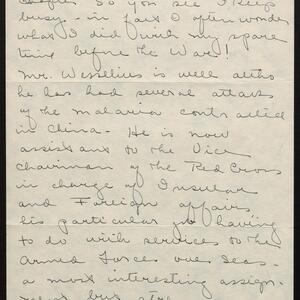 So you see I keep
busy - in fact I often wonder
what I did with my spare
time before the War!
Mr. Wesselius is well altho
he has had several attacks
of the malaria contracted
in China. He is now
assistant to the Vice
Chairman of the Red Cross
in charge of Insular
and Foreign affairs,
his particular job having
to do with services to the
Armed Forces over seas -
a most interesting assign-
ment but